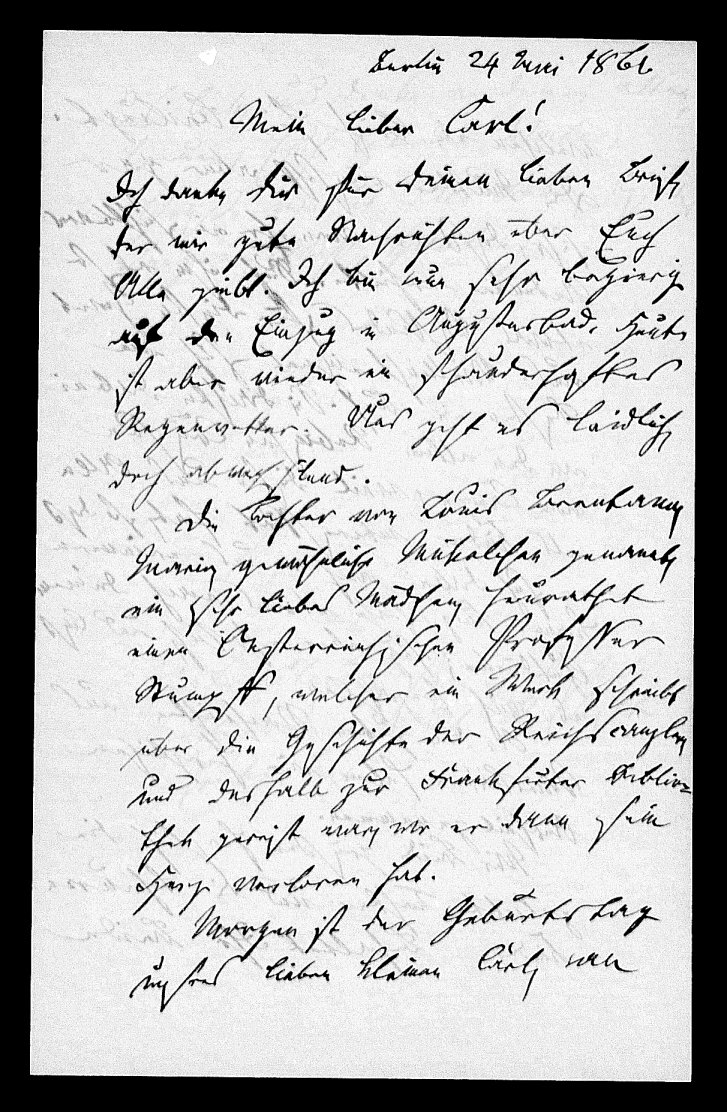 Berlin 24 Juni 1861
Mein lieber Carl!
Ich danke Dir für Deinen lieben Brief
der mir gute Nachrichten über Euch
Alle giebt. Ich bin nun sehr begierig
auf den Einzug in Augustusbad. Heute
ist aber wieder ein schauderhaftes
Regenwetter. Uns geht es leidlich
doch abwechselnd.
Die Tochter von Louis Brentano
Marie gewöhnlich genannt
ein sehr liebes Mädchen heurathet
einen Oesterreichischen Professor
Stumpff, welcher ein Werk schreibt
über die Geschichte der Reichscanzler
und deshalb zur Frankfurter Biblio=
thek gereist war, wo er dann sein
Herz verloren hat.
Morgen ist der Geburtstag
unsres lieben kleinen von